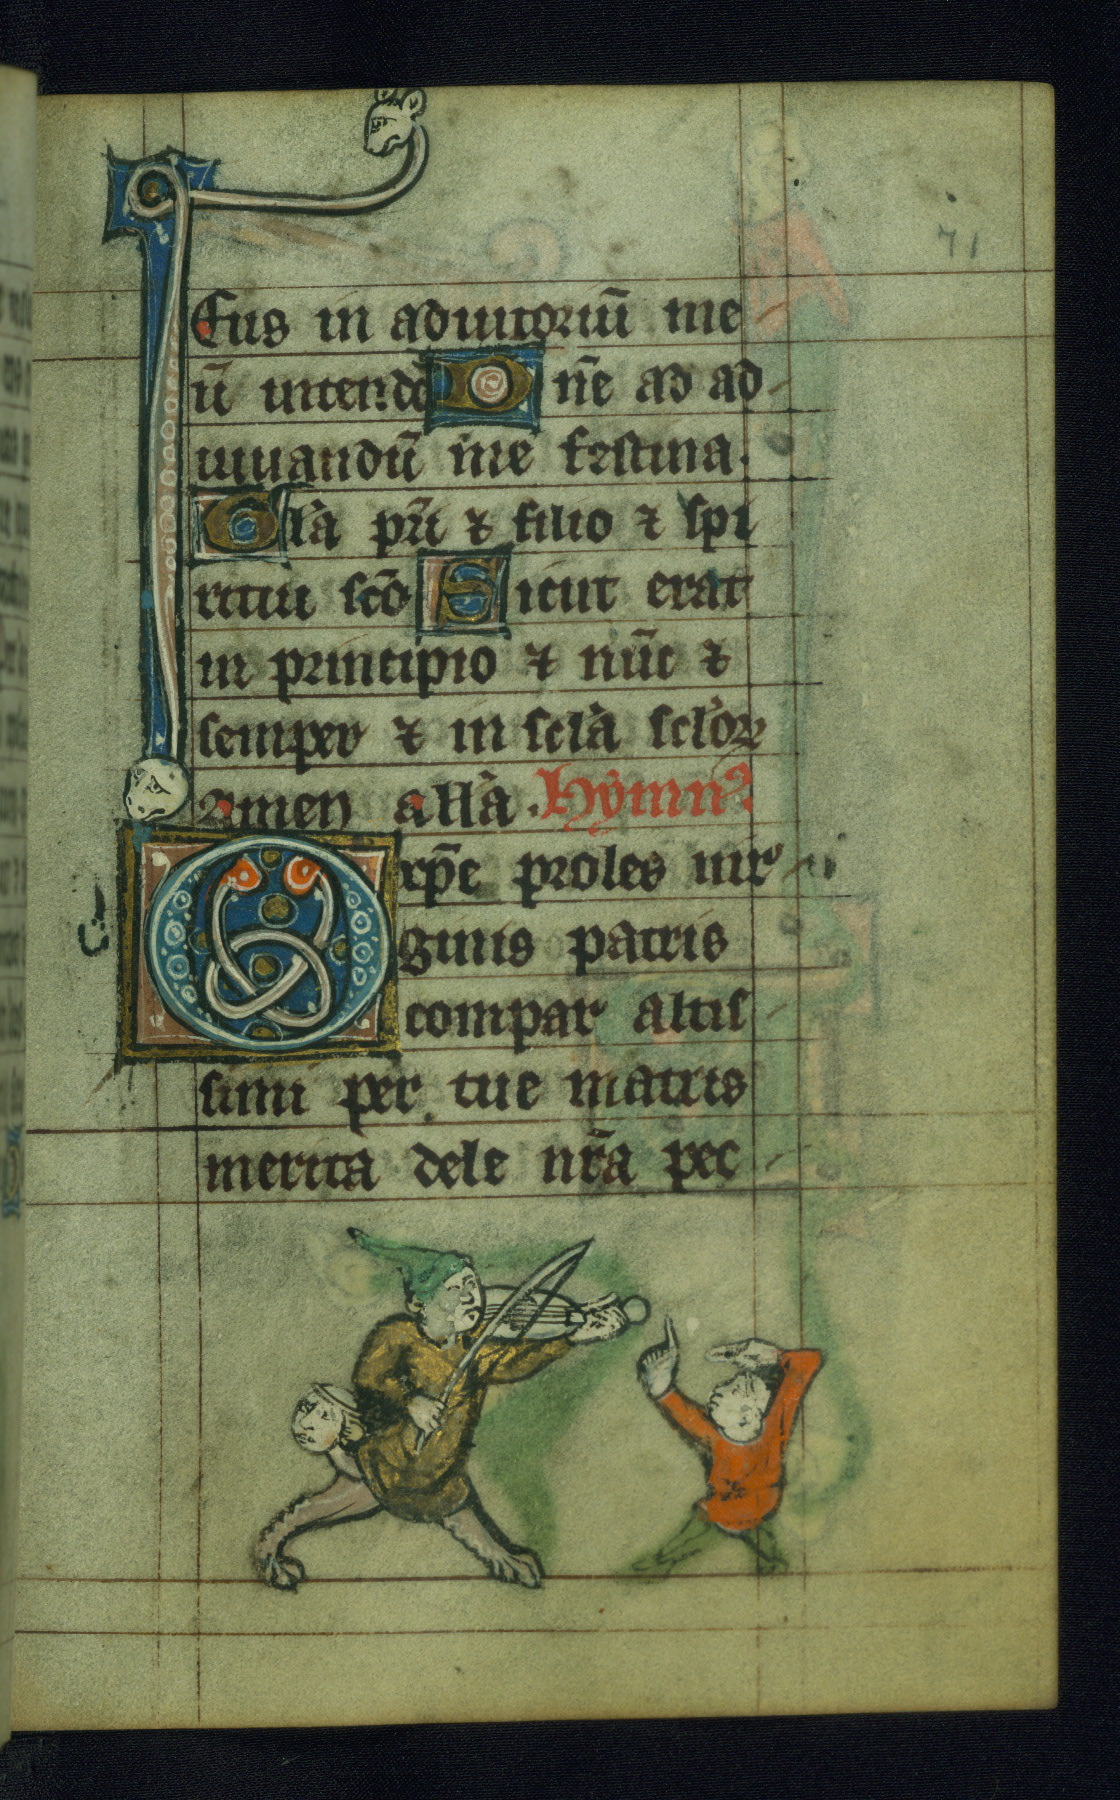 71
Eus in adiutoriū me
ū intendē Dn̄e ad ad
iuuandū me festina.
Gla pr̄i ⁊ filio ⁊ spi
ritui sc̄o Sicut erat
in principio ⁊ nūc ⁊
semper ⁊ in scl̄a scl̄oꝝ
amen all̄a. Hymn᷒.
rp̄e proles uir
ginis patris
compar altis
simi per tue matris
merita dele nr̄a pec